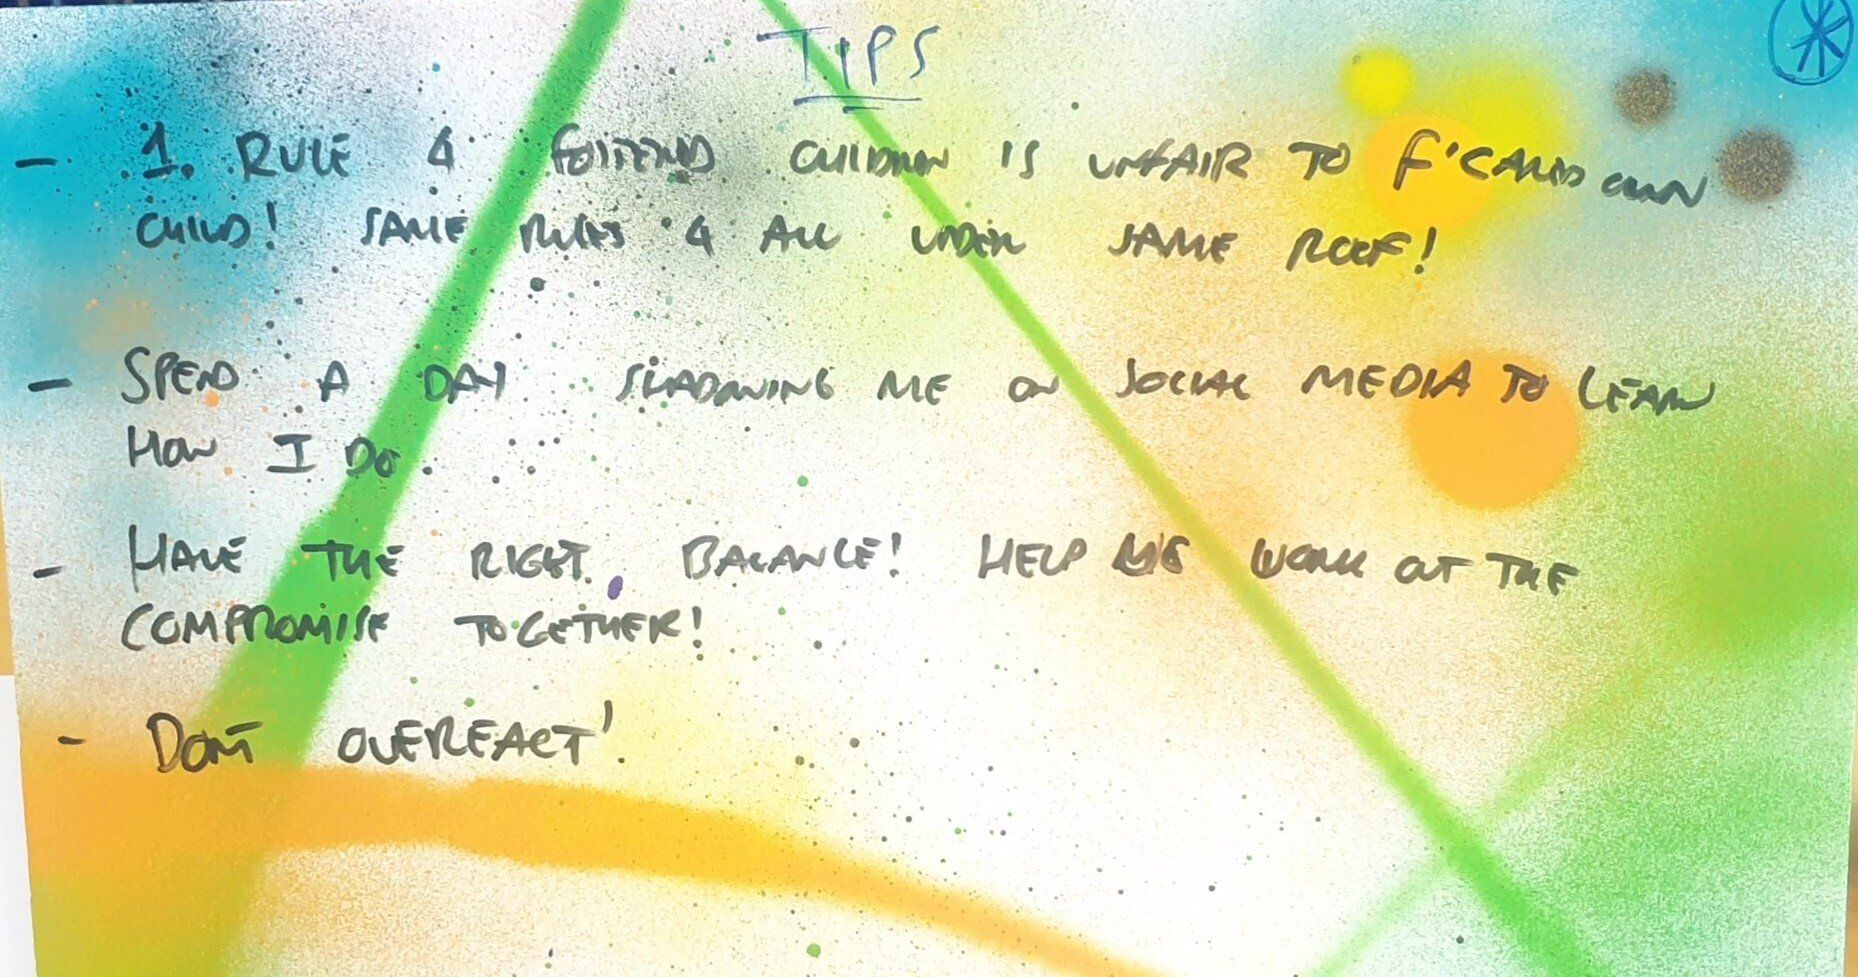 TIPS
- 1. RULE 4 FOSTERED CHILDREN IS UNFAIR TO F'CARERS OWN
CHILD! SAME RULES 4 ALL UNDER SAME ROOF!
- SPEND A DAY SHADOWING ME ON SOCIAL MEDIA TO LEARN
HOW I DO.
- HAVE THE RIGHT BALANCE! HELP US WORK OUT THE
COMPROMISE TOGETHER!
- DONT OVERREACT!